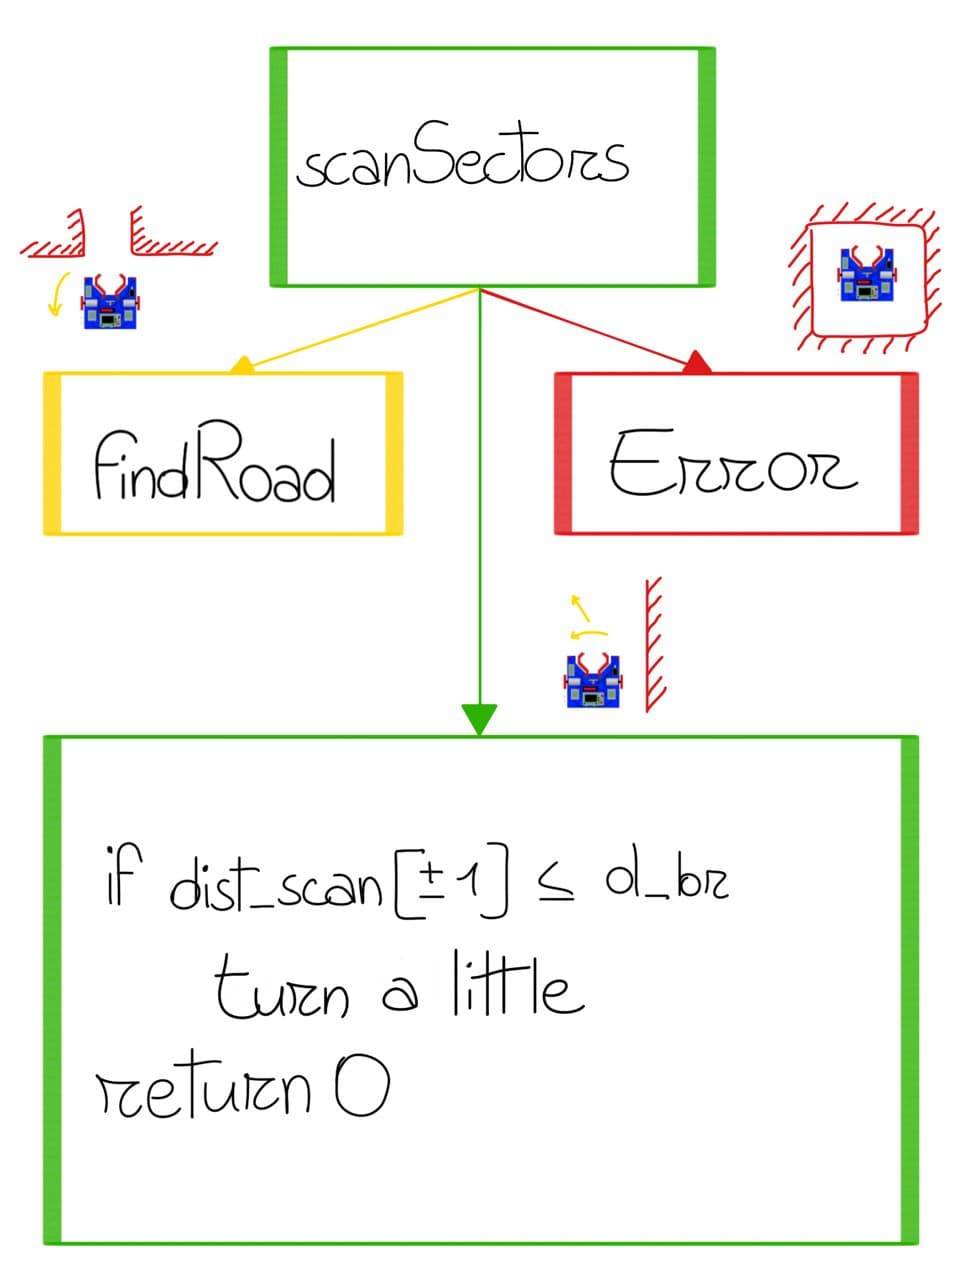 scanSectors
findRoad
Error
if dist_scan[±1] ≤ d_br
turn a little
return 0